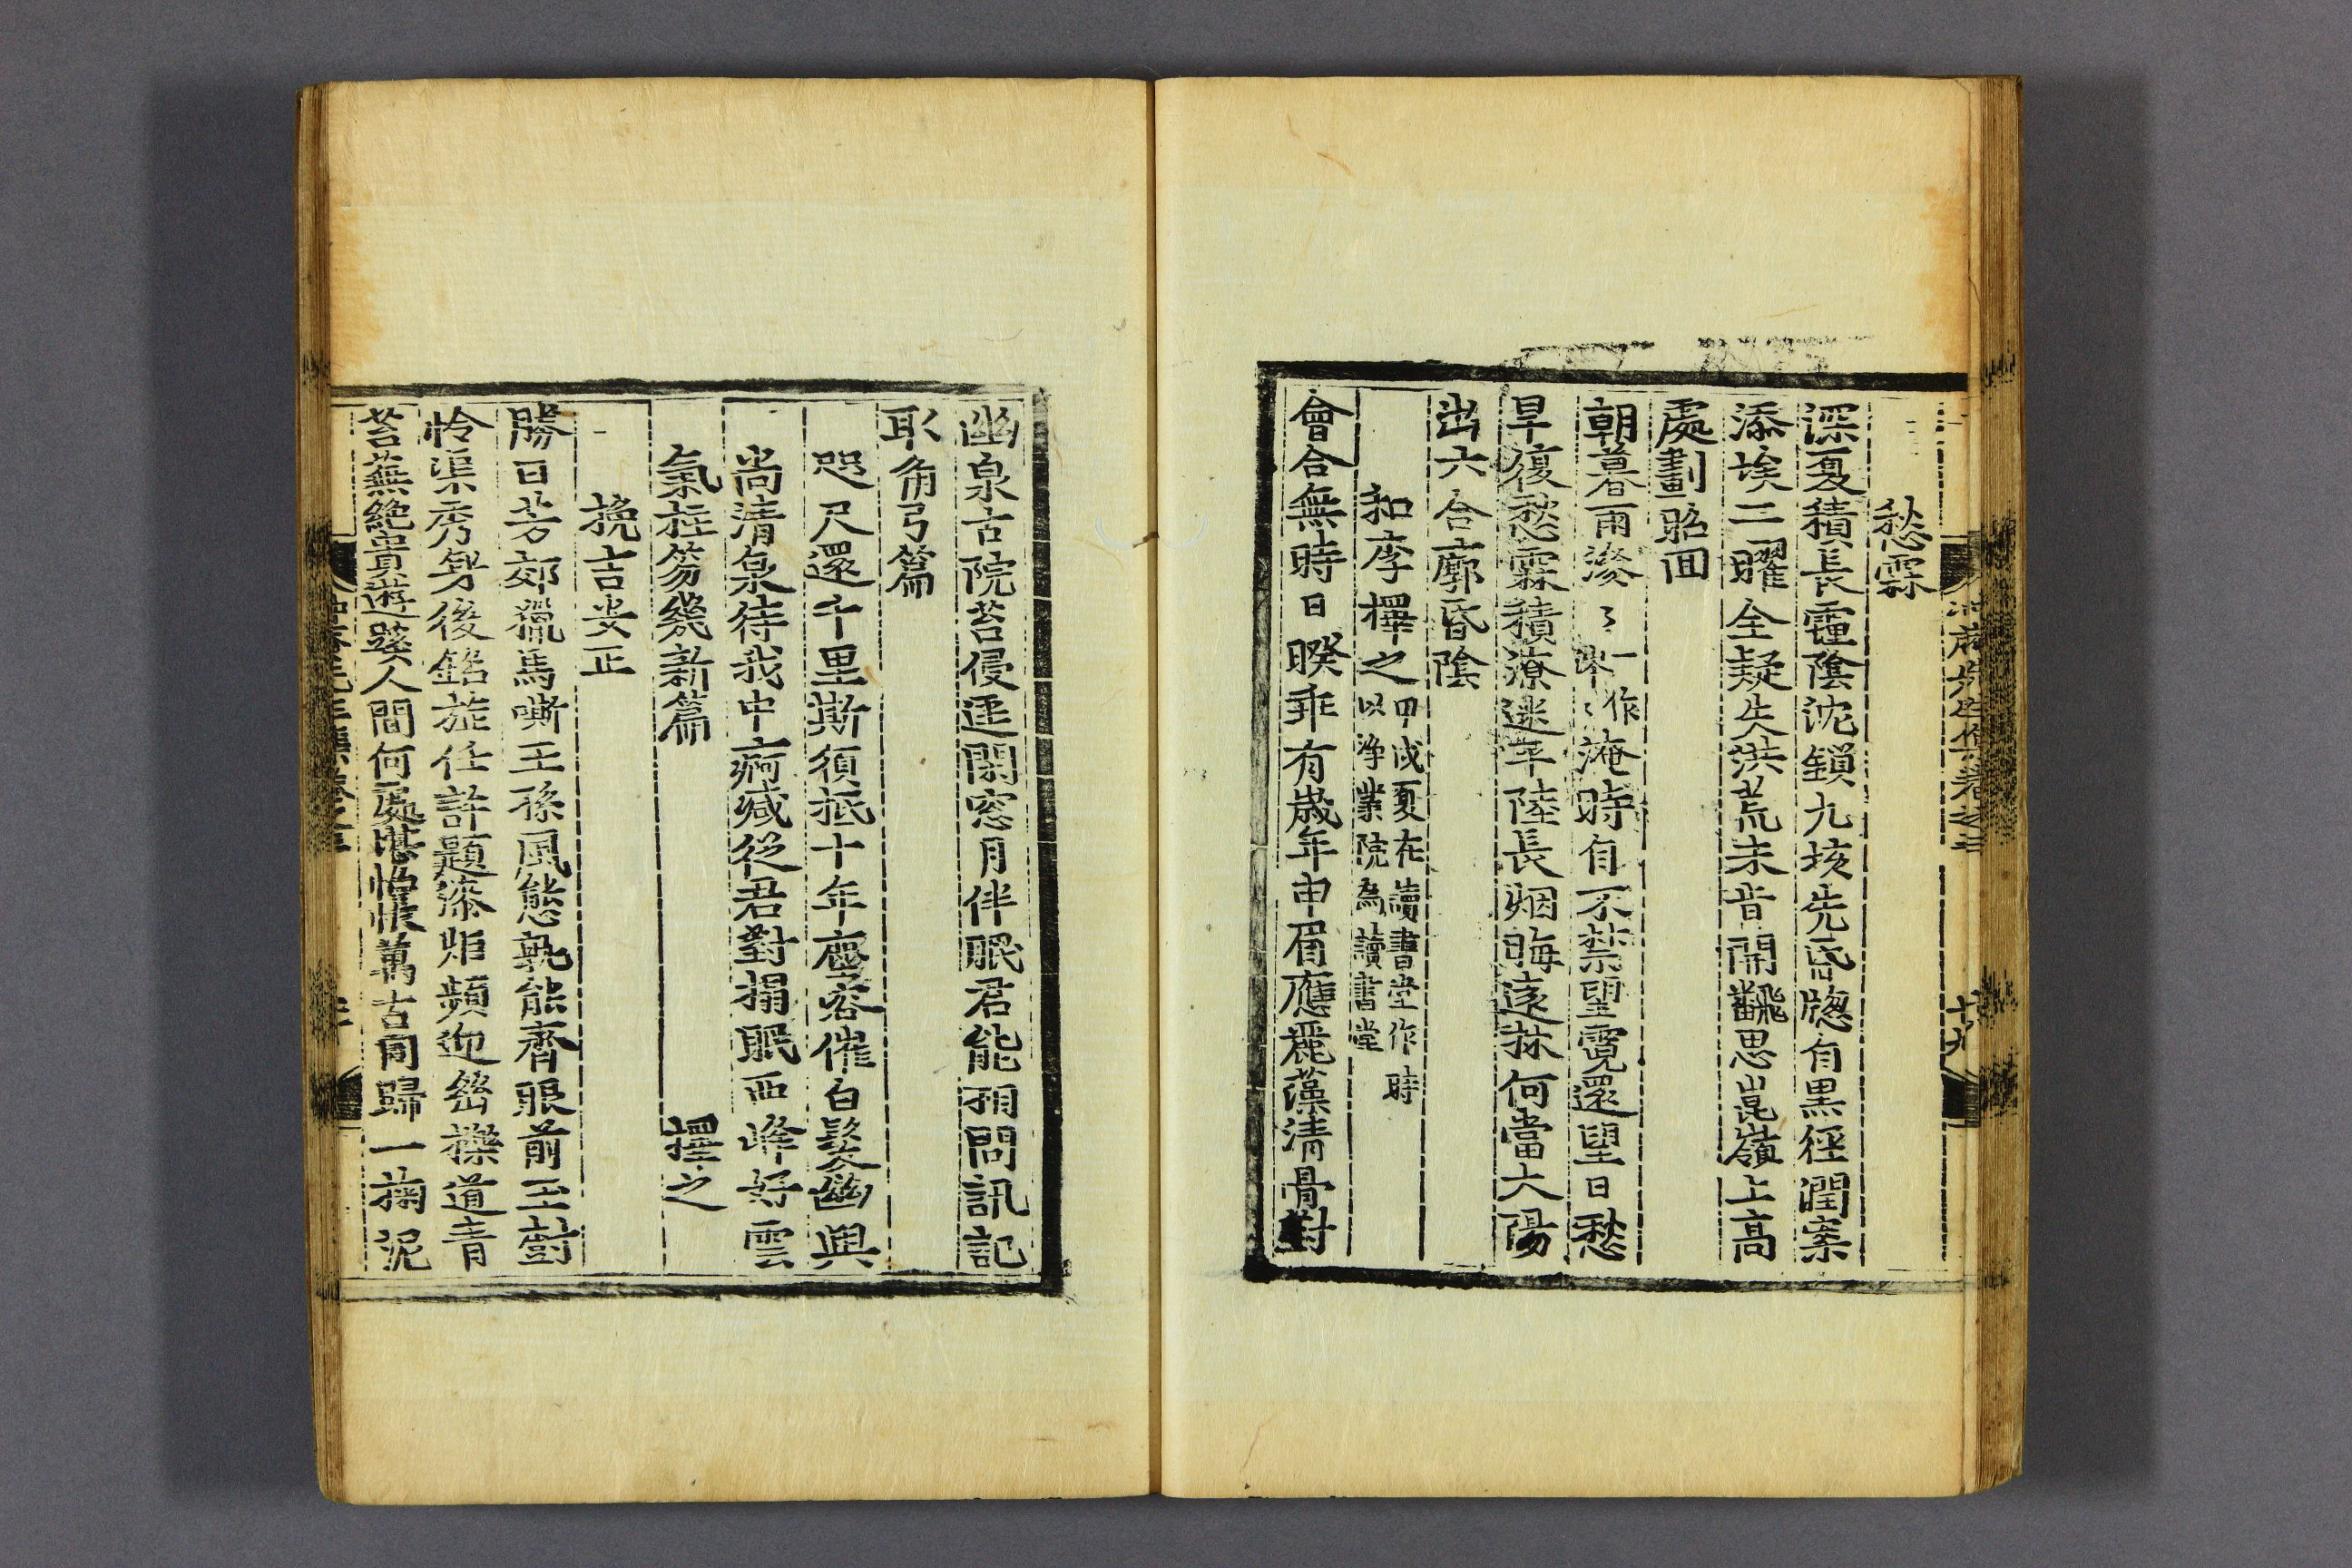 愁霖
深夏積長霾陰沈鎖九垓先昏牕有黑徑潤案
添埃二曜全疑失洪荒未昔開飜思崑嶺上高
處劃昭回
朝暮雨濛〻一作〻淹時自不禁望霓還望日愁
旱復愁霖積潦迷平陸長烟晦遠林何當大陽
出六合廓昏陰
和李擇之甲戌夏在讀書堂作時以淨業院爲讀書堂
會合無時日暌乖有歲年申眉應麗藻淸骨對
十九
幽泉古院苔侵逕閑窓月伴眠君能頻問訊記
取角弓篇
咫尺還千里斯須抵十年塵容催白髮幽興
尙清泉待我中痾減從君對榻眠西峰好雲
氣拄笏幾新篇　擇之
挽吉安正
勝日芳郊獵馬嘶王孫風態孰能齊眼前玉樹
怜渠秀身後銘旌任許題漆炬頻迎
道靑
苔蕪絶貴遊蹊人間何處堪惆悵萬古同歸一掬泥